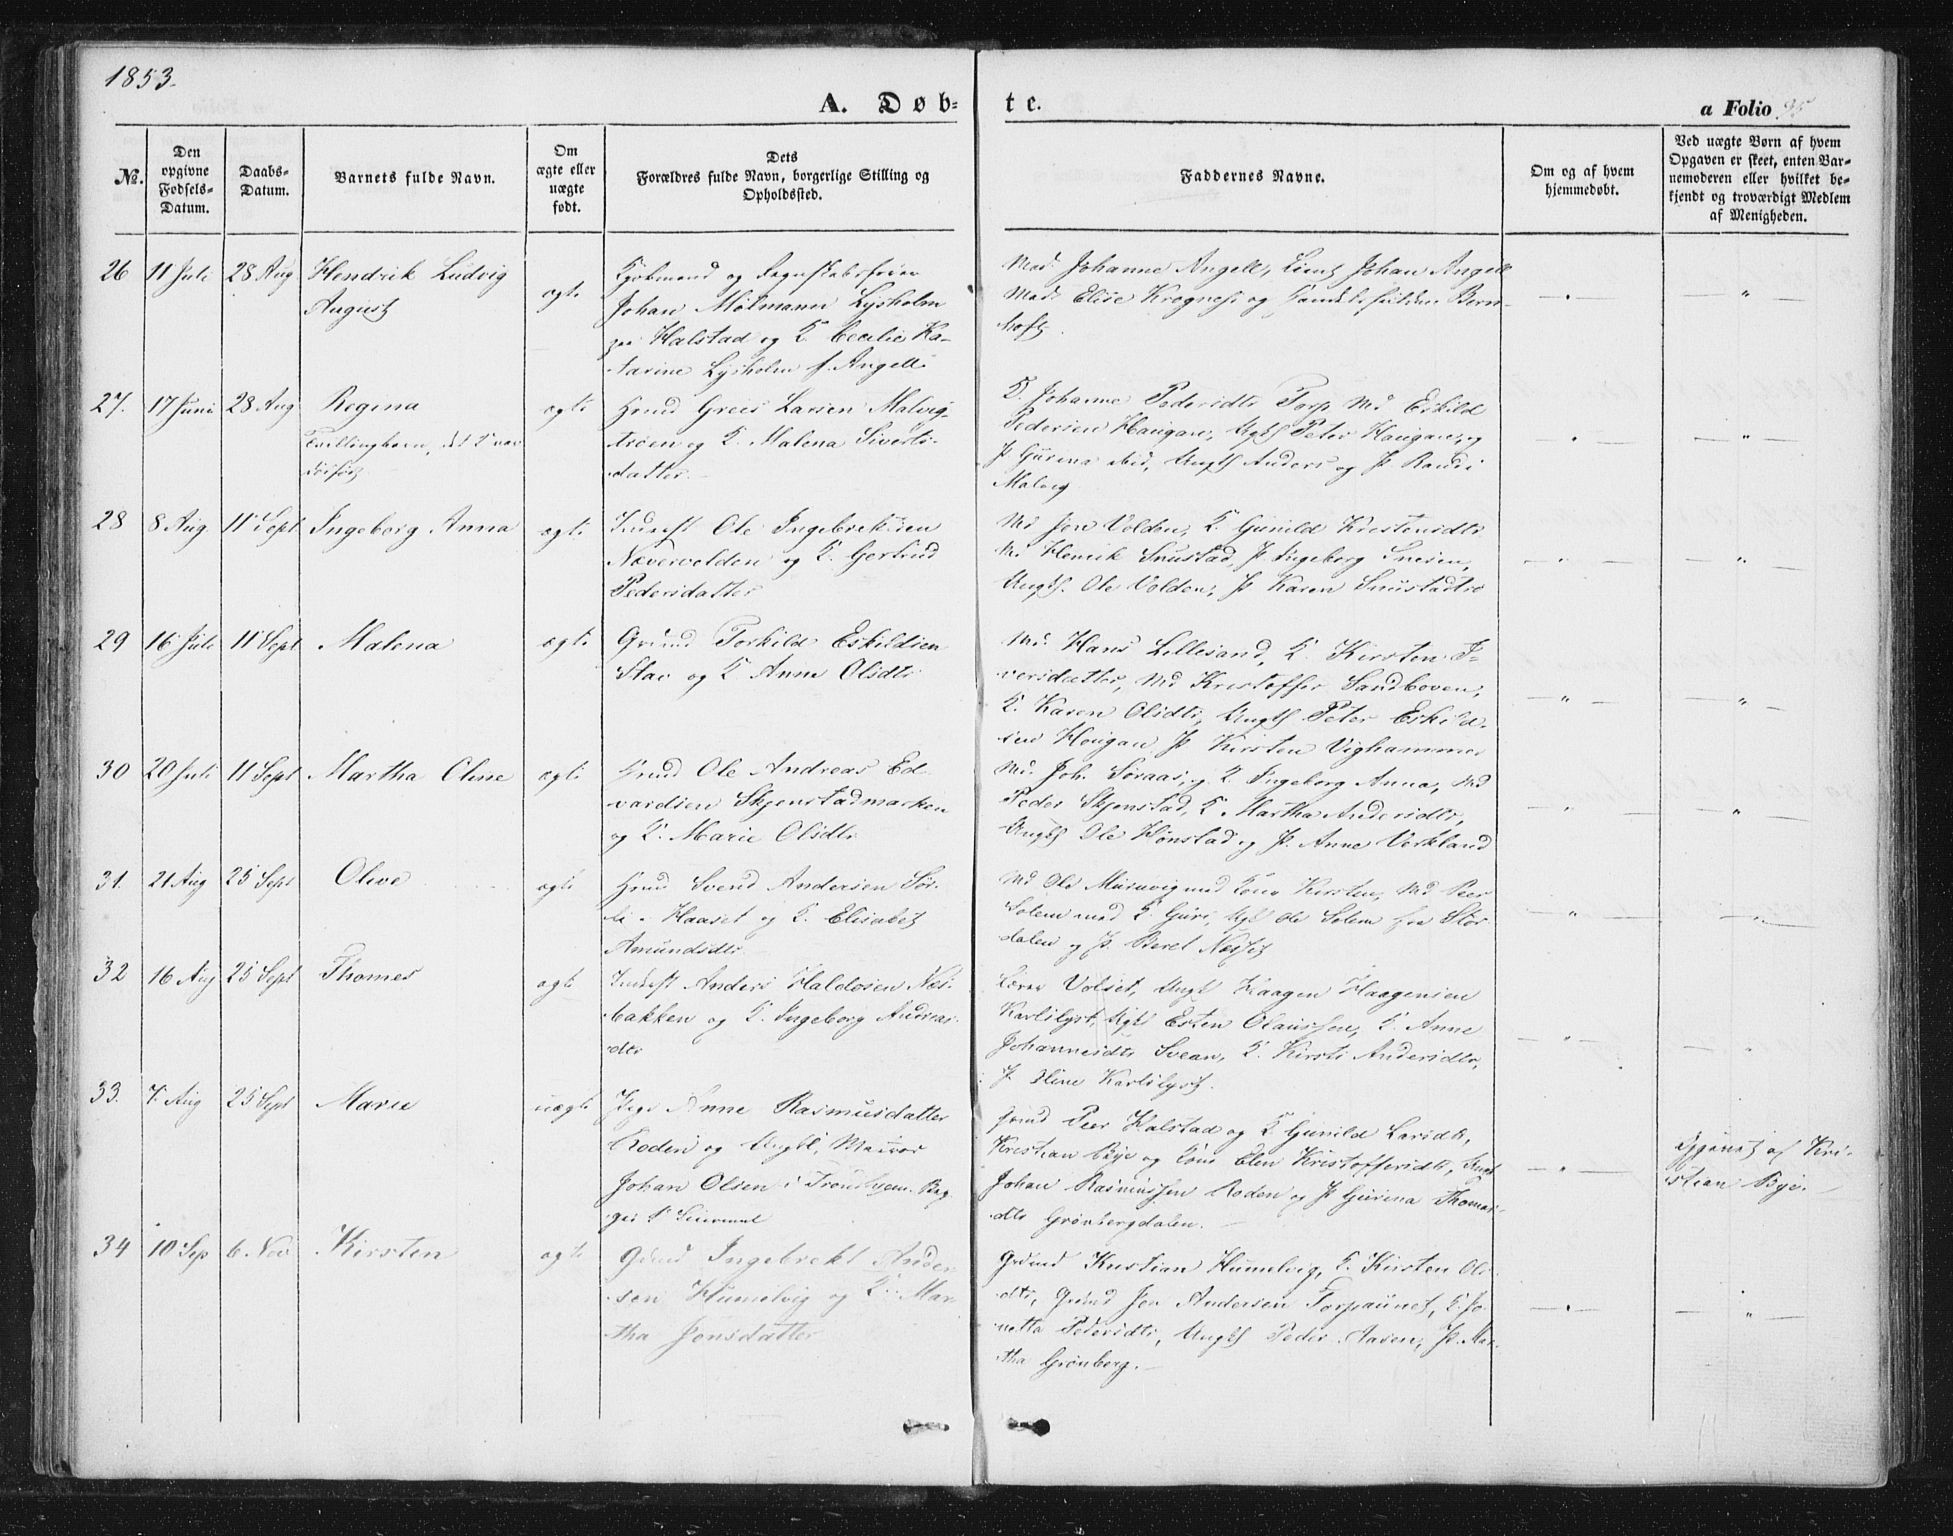 1853.
A. Døb-
te.
a Folio 95
No.
Den
opgivne
Fødsels-
Datum.
Daabs-
Datum.
Barnets fulde Navn.
Om
ægte eller
uægte
født.
Dets
Forældres fulde Navn, borgerlige Stilling og
Opholdssted.
Faddernes Navne.
Om og af hvem
hjemmedøbt.
Ved uægte Børn af hvem
Opgaven er skeet, enten Bar-
nemoderen eller hvilket be-
kjendt og troværdigt Medlem
af Menigheden.
26 11 Juli 28 Aug Hendrik Ludvig
August
ægte
Kjøbmand og
Johan Mølmann Lysholm
paa Halstad og K. Cecilie Ka-
tarine Lysholm f. Angell
Mad. Johanne Angell, Lieut Johan Angell
Mad. Elise Krogness og Bern-
hoft.
27. 17 Juni 28 Aug Regina
Tvillingbarn, det
dødfødt
ægte
Grund Greis Larsen Malvig-
trøen og K. Malena Siverts-
datter.
K. Johanne Pedersdtr Torp Md Eskild
Pedersen Haugan, Ungk Peter Haugan, og
P. Gurina ibid, Ungk Anders og P. Randi
Malvig
28 8 Aug 11 Sept Ingeborg Anna ægte
Inderst Ole Ingebrektsen
Nævervolden og K. Gertrud
Pedersdatter
Md Jon Volden, K. Gunild Kristensdtr
M. Henrik Snustad, P. Ingeborg
Ungk. Ole Volden, P. Karen Snustadtrø
29 16 Juli 11 Sept Malena ægte
Grund Torkild Eskildsen
Stav og K Anne Olsdtr
Md. Hans Lillesand, K. Kirsten I-
versdatter, Md Kristoffer Sandboven,
K. Karen Olsdtr, Ungk Peter Eskild-
sen Hougan P. Kirsten Vighammer
30 20 Juli 11 Sept Martha Oline ægte
Grund Ole Andreas Ed-
vardsen Skjenstadmarken
og K. Marie Olsdtr
Md. Joh. Søraas, og K. Ingeborg Anna, Md
Peder Skjenstad, K. Martha Andersdtr,
Ungk Ole Hønstad og P. Anne Verkland
31. 21 Aug 25 Sept Olive ægte
Grund Svend Andersen Sør-
li i Haaset og K. Elisabet
Amundsdtr
Md Ole Muruvig med Kone Kirsten, Md Peer
Solem med K. Guri, Ugk Ole Solem fra Stør-
dalen og P. Beret Næsset
32 16 Aug 25 Sept Thomes
ægte
Inderst Anders Haldosen Næs-
bakken og K. Ingeborg Andreas-
dtr
Lærer Volset, Ungk Haagen Haagensen
Karlslyst, Ugk Esten Olaussen, K. Anne
Johannesdtr Svean, K. Kirsti Andersdtr,
P. Oline Karlslyst.
33. 7. Aug 25 Sept Marie uægte
Pige Anne Rasmusdatter
Roden og Ungk, Murer
Johan Olsen i Trondhjem. Beg-
ges
Grund Peer Halstad og K Gunild Larsdtr,
Kristian Bye og Kone Elen Kristoffersdtr, Ungk
Johan Rasmussen Roden og P Gurina Thomas-
dtr Grønbergdalen.
Opgivet af Kri-
stian Bye.
34 10 Sep 6 Nov Kirsten ægte
Grund Ingebrekt Ander-
sen Humelvig og K. Mar-
tha Jonsdatter
Grund Kristian Humelvig, K. Kirsten Ols-
dtr, Grund Jon Andersen Torpaunet, K. Jo-
netta Pedersdtr, Ungk Peder Aasen, P. Mar-
tha Grønberg.